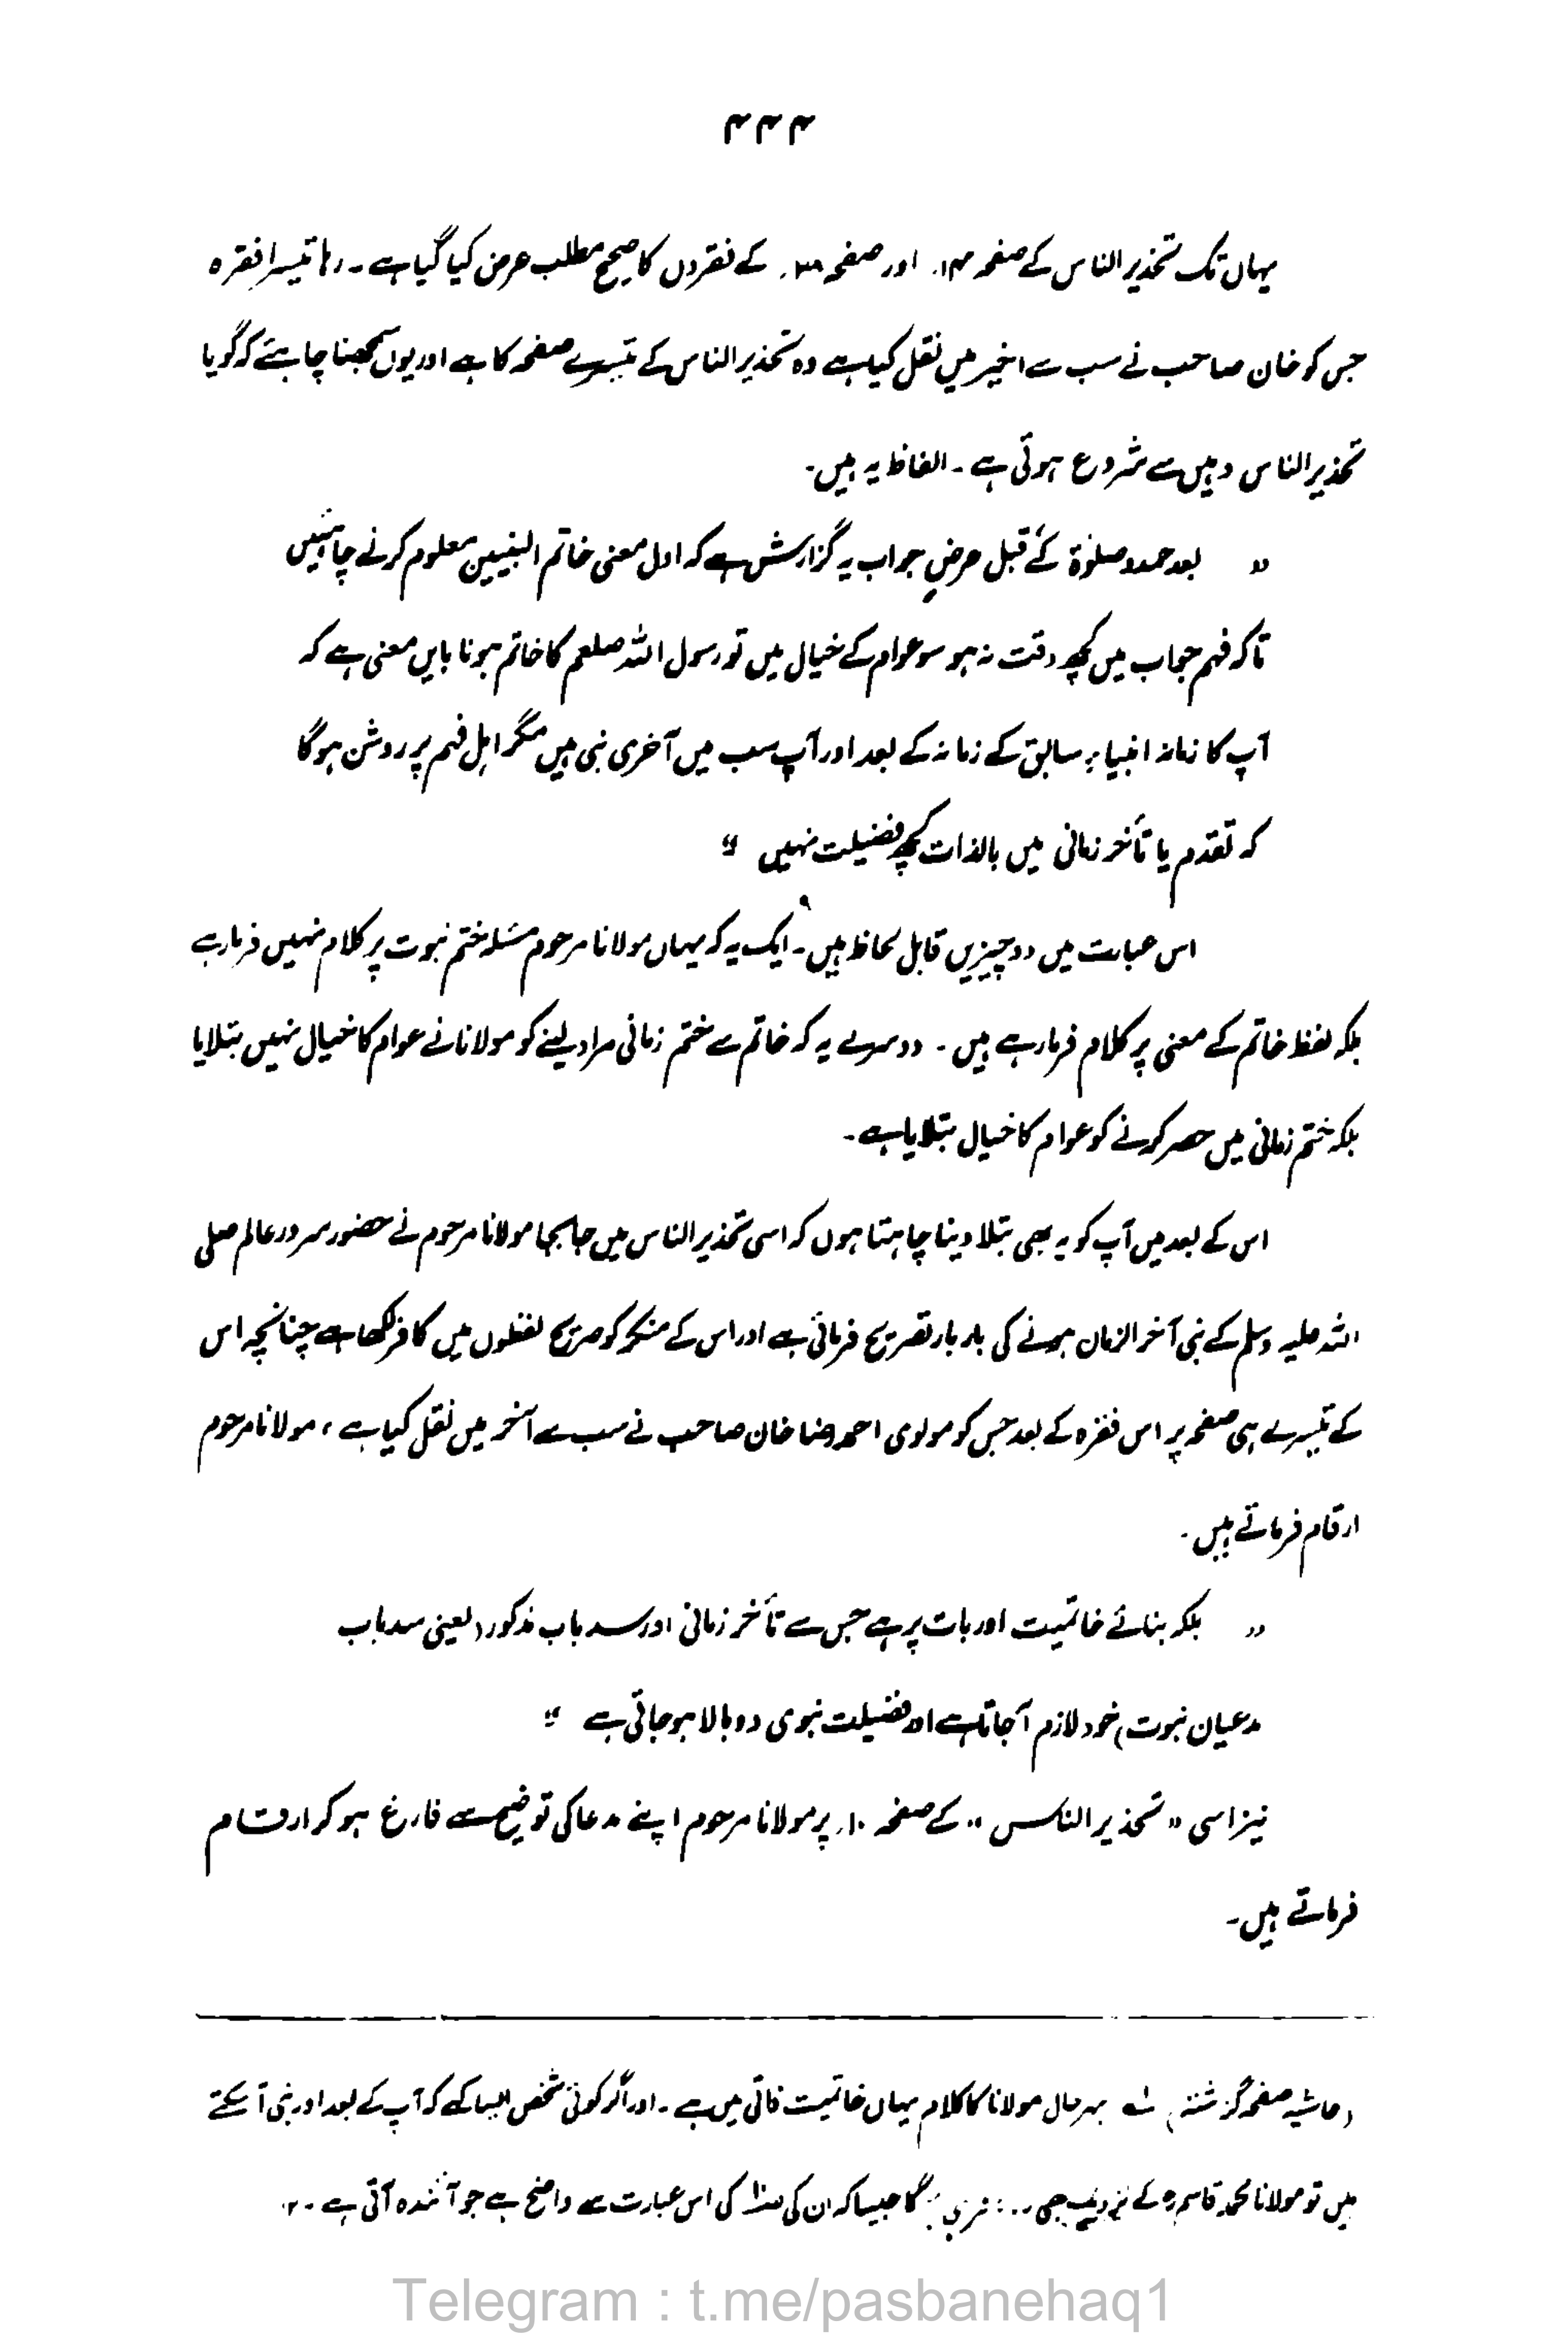 ۴۴۴
یہاں تک تحذیر الناس کے صفحہ ۱۴، اور صفحہ ۲۸، کے فقروں کا صحیح مطلب عرض کیا گیا ہے۔ رہا تیسرا فقرہ
جس کو خان صاحب نے سب سے اخیر میں نقل کیا ہے وہ تحذیر الناس کے تیسرے صفحہ کا ہے اور یوں سمجھنا چاہئے کہ گویا
تحذیر الناس وہیں سے شروع ہوتی ہے۔ الفاظ یہ ہیں۔
" بعد حمد و صلوٰۃ کے قبل عرضِ جواب یہ گزارش ہے کہ اول معنی خاتم النبیین معلوم کرنے چاہئیں
تاکہ فہم جواب میں کچھ دقت نہ ہو سو عوام کے خیال میں تو رسول اللہ صلعم کا خاتم ہونا بایں معنی ہے کہ
آپ کا زمانہ انبیاءِ سابق کے زمانہ کے بعد اور آپ سب میں آخری نبی ہیں مگر اہل فہم پر روشن ہوگا
کہ تقدم یا تأخر زمانی میں بالذات کچھ فضیلت نہیں "
اس عبارت میں دو چیزیں قابل لحاظ ہیں۔ ایک یہ کہ یہاں مولانا مرحوم مسئلہ ختم نبوت پر کلام نہیں فرما رہے
بلکہ لفظ خاتم کے معنی پر کلام فرما رہے ہیں۔ دوسرے یہ کہ خاتم سے ختم زمانی مراد لینے کو مولانا نے عوام کا خیال نہیں بتلایا
بلکہ ختم زمانی میں حصر کرنے کو عوام کا خیال بتلایا ہے۔
اس کے بعد میں آپ کو یہ بھی بتلا دینا چاہتا ہوں کہ اسی تحذیر الناس میں جابجا مولانا مرحوم نے حضور سرور عالم صلی
اللہ علیہ وسلم کے نبی آخر الزمان ہونے کی بار بار تصریح فرمائی ہے اور اس کے منکر کو صریح لفظوں میں کافر لکھا ہے چنانچہ اس
کے تیسرے ہی صفحہ پر اس فقرہ کے بعد جس کو مولوی احمد رضا خان صاحب نے سب سے آخر میں نقل کیا ہے، مولانا مرحوم
ارقام فرماتے ہیں۔
" بلکہ بنائے خاتمیت اور بات پر ہے جس سے تأخر زمانی اور سد باب مذکور (یعنی سد باب
مدعیان نبوت) خود لازم آجاتا ہے اور فضیلت نبوی دوبالا ہو جاتی ہے "
نیز اسی " تحذیر الناس " کے صفحہ ۱۰، پر مولانا مرحوم اپنے مدعا کی توضیح سے فارغ ہو کر ارقام
فرماتے ہیں۔
(حاشیہ صفحہ گزشتہ) لہ بہرحال مولانا کا کلام یہاں خاتمیت ذاتی میں ہے۔ اور اگر کوئی شخص ایسا کہے کہ آپ کے بعد اور نبی آ سکتے
ہیں تو مولانا محمد قاسمؒ کے نزدیک بھی گا جیسا کہ ان کی کی اس عبارت سے واضح ہے جو آئندہ آتی ہے۔ ۱۲
Telegram : t.me/pasbanehaq1